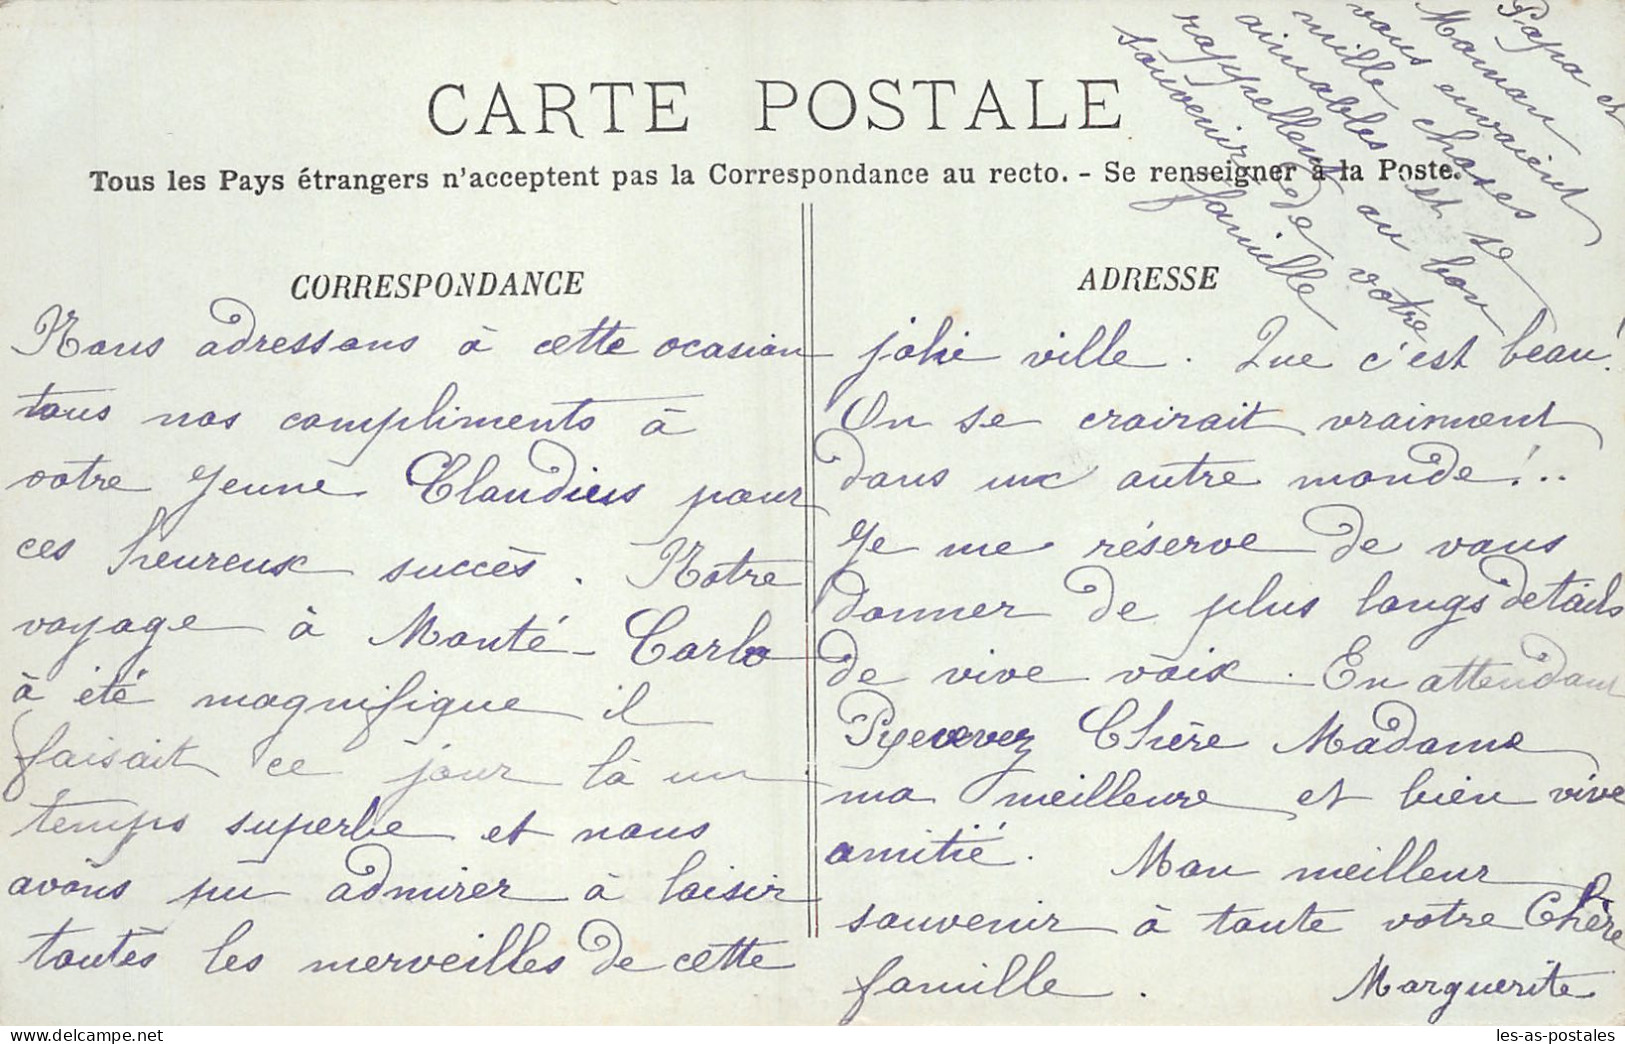 CARTE POSTALE
Tous les Pays étrangers n'acceptent pas la Correspondance au recto. - Se renseigner à la Poste.
CORRESPONDANCE
Nous adressons à cette ocasion
tous nos compliments à
votre jeune Claudius pour
ces heureux succès. Notre
voyage à Monté-Carlo
à été magnifique il
faisait ce jour là un
temps superbe et nous
avons pu admirer à loisir
toutes les merveilles de cette
ADRESSE
jolie ville. Que c'est beau!
On se croirait vraiment
dans un autre monde!..
Je me réserve de vous
donner de plus longs détails
de vive voix. En attendant
Recevez Chère Madame
ma meilleure et bien vive
amitié. Mon meilleur
souvenir à toute votre Chère
famille.
Marguerite
Papa et
Maman
vous envoient
mille choses
aimables et se
rappellent au bon
souvenir de votre
famille
les-as-postales
delcampe.net